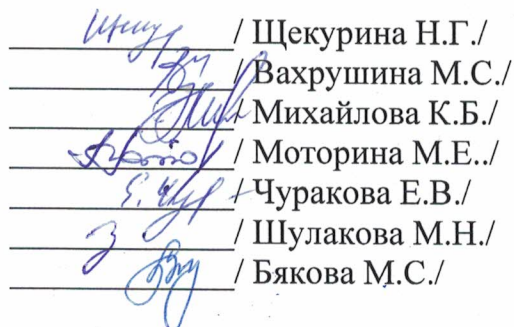 / Щекурина Н.Г./
/ Вахрушина М.С./
/ Михайлова К.Б./
/ Моторина М.Е../
/ Чуракова Е.В./
/ Шулакова М.Н./
/ Бякова М.С./